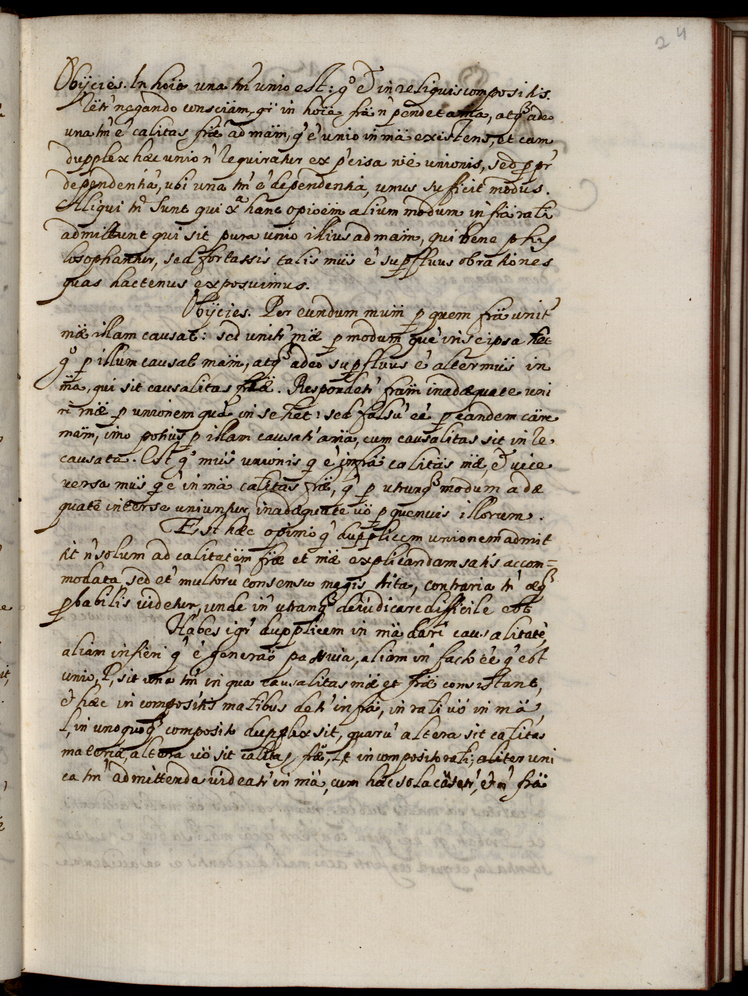 24
Obijcies. In hoie una tñ unio est: gº et in reliquis compositis.
negando consciam, qī in hoīe frã ñ pendet a mã, atq3 adeo
una tñ ē calitas frẽ ad mãm, q' ē unio in mã existens, et cum
dupplex hæc unio ñ requiratur ex p'cisa rõe unionis, sed p pr
dependentia, ubi una tñ ē dependentia, unus sufficit modus.
Aliqui tñ sunt qui xª hanc opioēm alium modum in frã rali
admittunt qui sit pura unio illius ad mãm, qui bene phi
losophantur, sed fortassis talis mũs ē supfluus ob rationes
quas hactenus exposuimus.
Obijcies. Per eundum mũm p quem frã unit'
mã illam causat: sed unit' mã p modum quē in se ipsa het
gº p illum causat mãm, atq3 adeo supfluus ē alter mũs in
mã, qui sit causalitas frẽ. Respondet' frãm inadæquate uni
ri mã p unionem quã in se het: sed falsũ ēē p eandem cãre
mãm, imo potius p illam causat' a mã, cum causalitas sit in re
causata. Est gº mũs unionis q ē in frã calitas mã, et vice
versa mũs q ē in mã calitas frẽ, q' p utrunq3 modum adæ
quate inter se uniuntur, inadæquate vō p quemvis illorum.
Est hæc opinio q' dupplicem unionem admit
tit ñ solum ad calitatem frẽ et mã explicandam satis accom=
modata, sed et' multorũ consensu magis trita, contraria tñ æq3
pbabilis videtur, unde in utranq3 dejudicare difficile est
Habes igr̃ dupplicem in mã dari causalitatē,
aliam in fieri q' ē generaõ passiva, aliam in facto ēē q' est
unio, sit una tñ in qua causalitas mã et frẽ consistant,
et hæc in compositis malibus det' in frã, in rali vō in mã
l, in unoquoq3 composito dupplex sit, quarũ altera sit calitas
materiæ, altera vō sit calitas frẽ, in composito rali; aliter uni
ca tñ admittenda videat' in mã, cum hæc sola cãset', et ñ frã